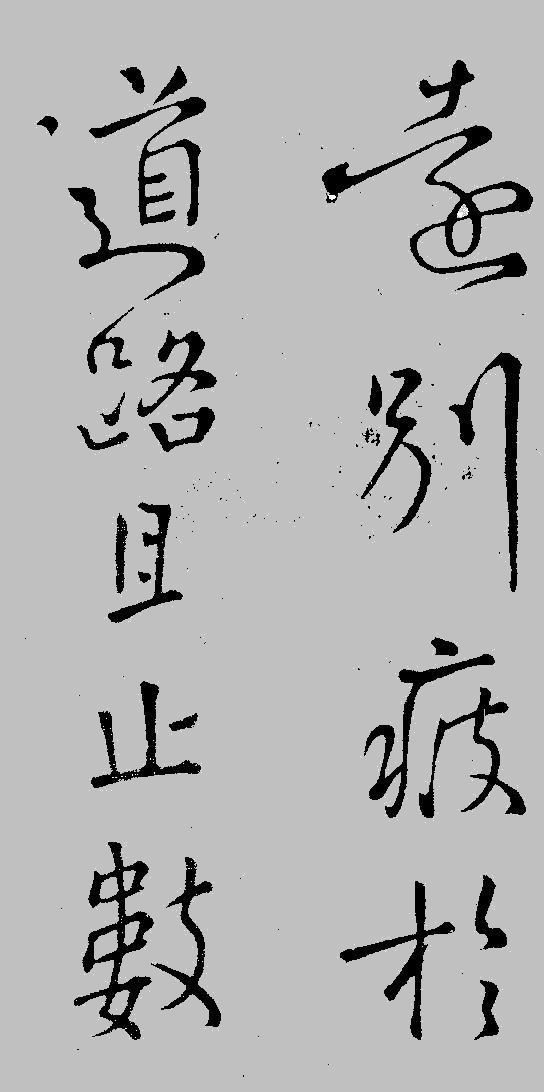 遠別疲於
道路且止數